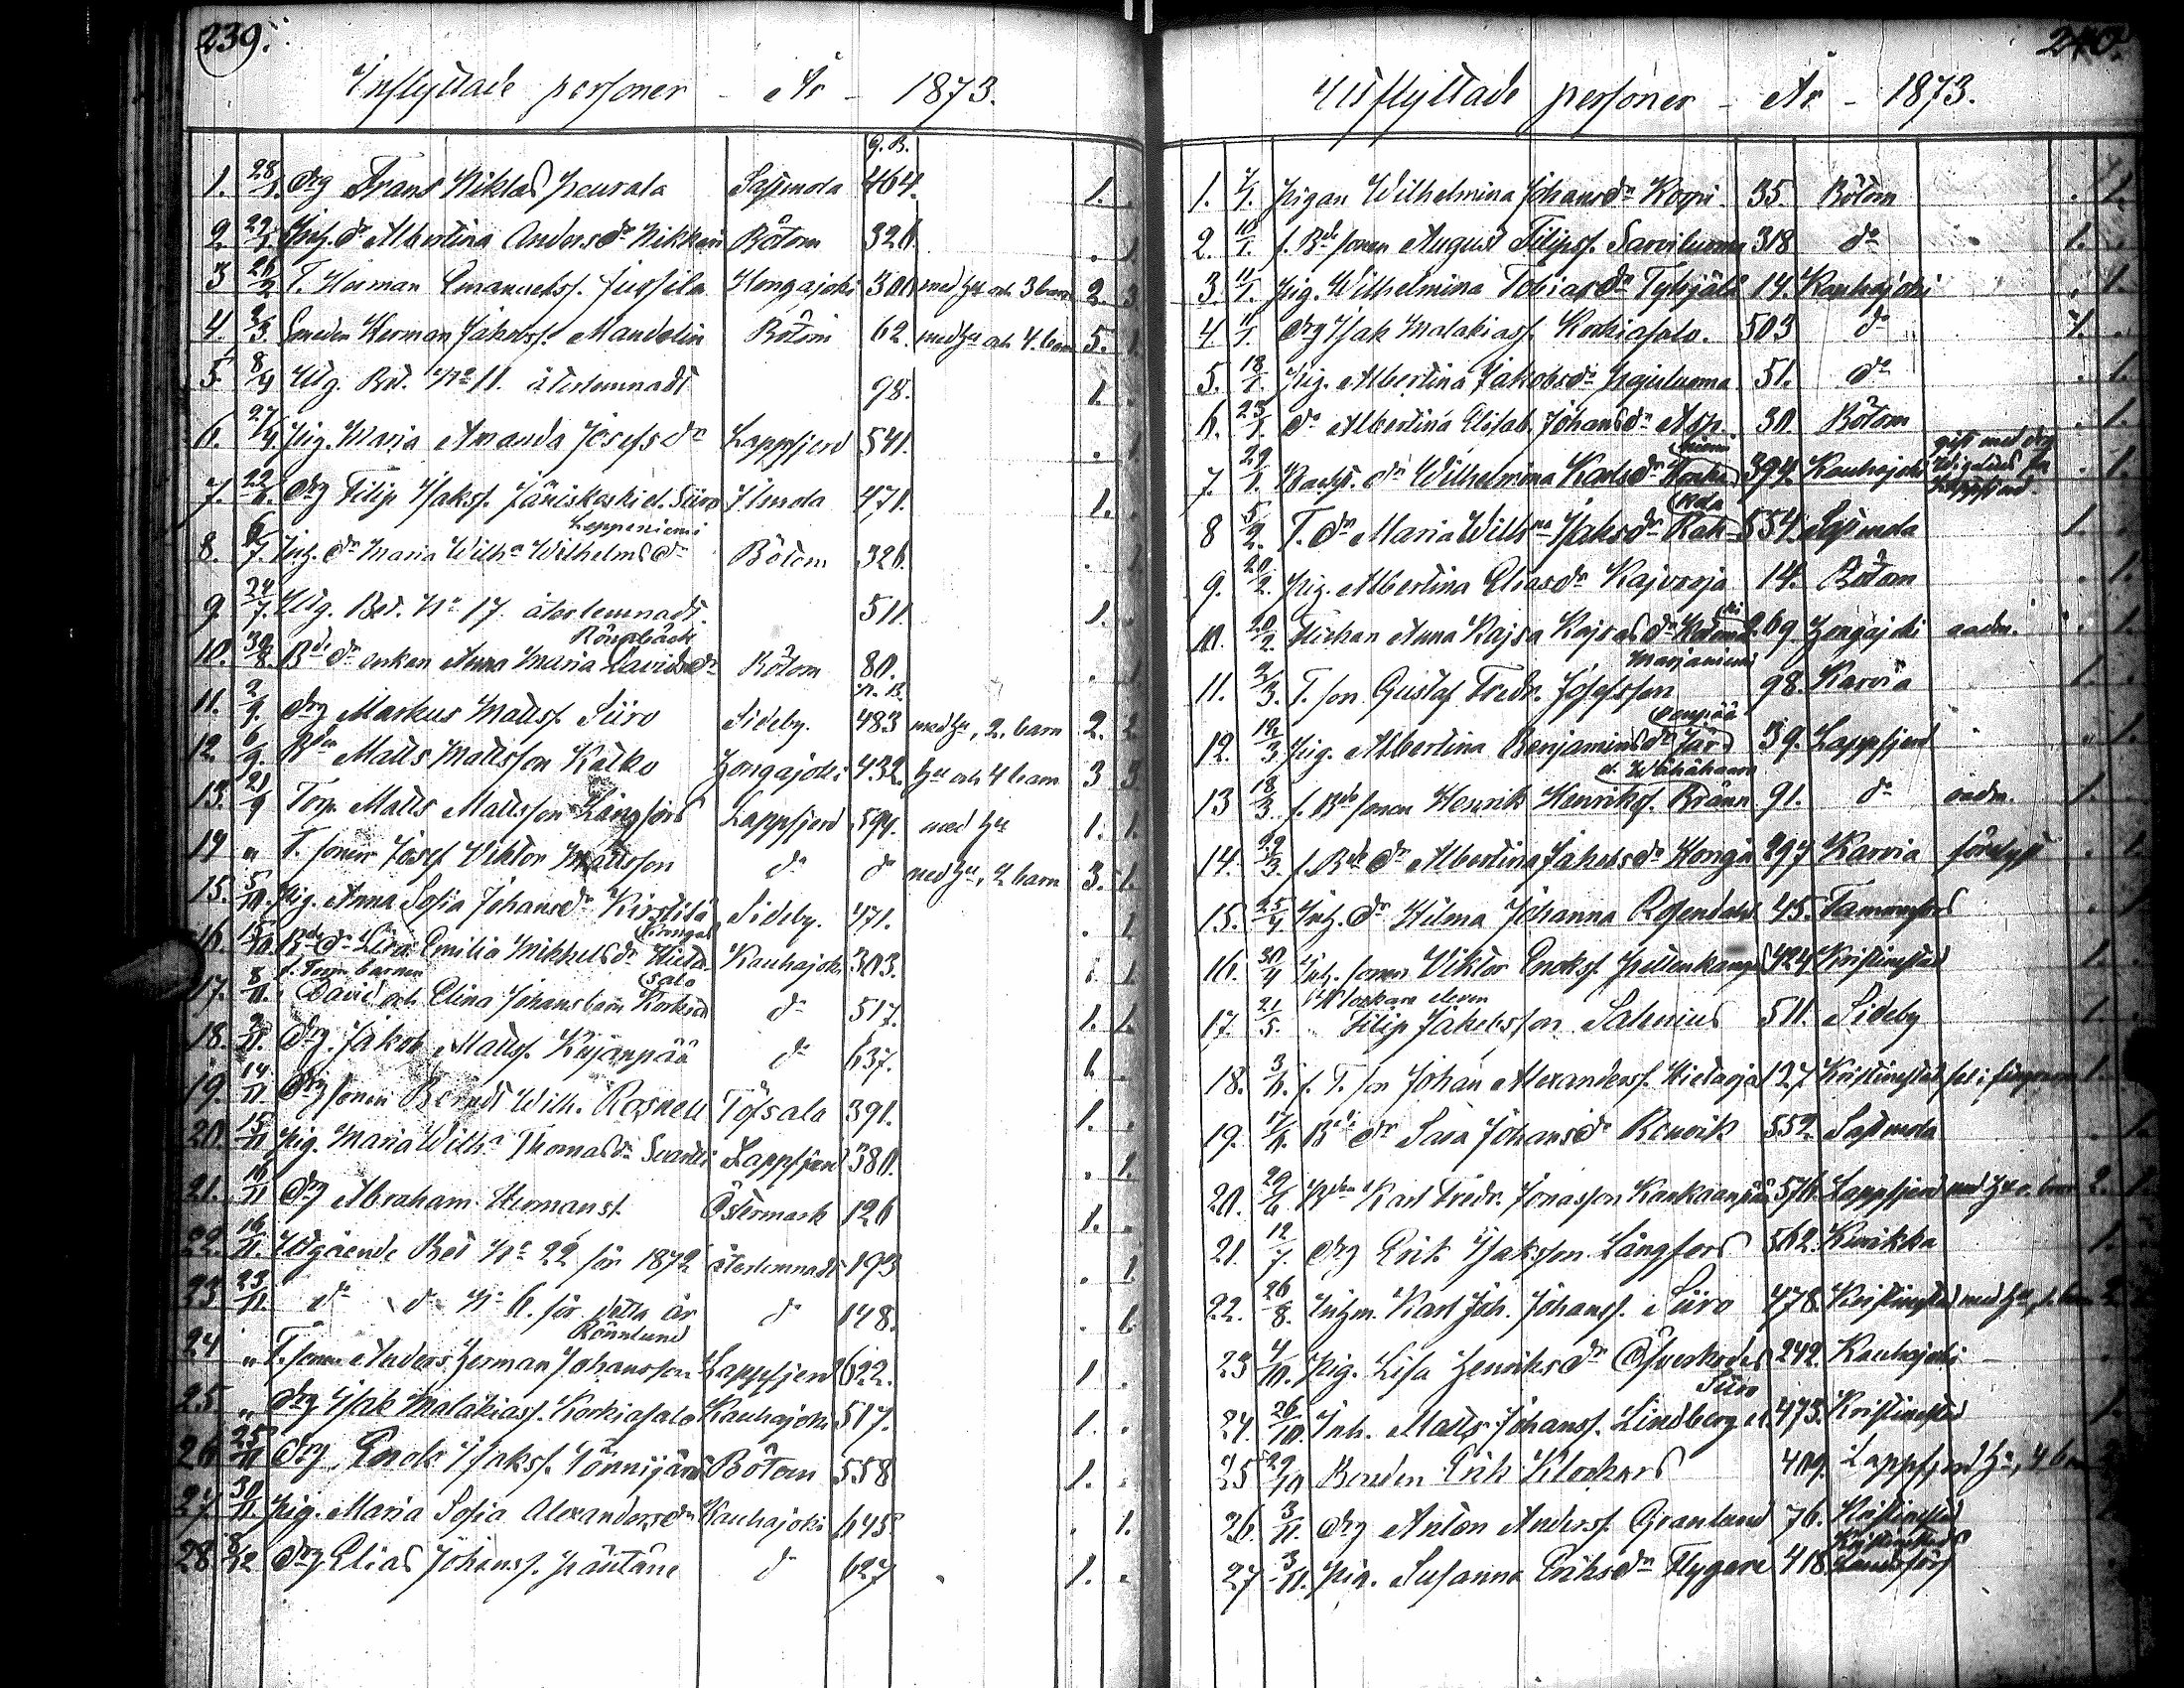 239.
Inflyttade personer - År - 1873.
g. B.
1. 28/1. Drg Frans Niklas Peurala 464. 1.
2. Inh. dr Albertina Andersdr Nikkari Bötom 326. . 1.
3 26/2 T. Herman Emanuelss. Jussila Hongajoki 300. med hu och 3 barn 2. 3
4. 2/3. Smeden Herman Jakobss. Mandelin Bötom 62. med hu och 4. barn 5. 1.
5. 8/4 Utg. Bet. No 11. återlemnadt 98. 1.
6. 27/4. Pig. Maria Amanda Josefsdr Lappfjerd 541. . 1.
7. 22/6. Drg Filip Isakss. Jäniskoski el. Siiro Ilmola 471. 1. .
Leppeniemi
8. 6/7. Inh. dr Maria Wilha Wilhelmsdr Bötom 326. . 1
9. 24/7. Utg. Bet. No 17. återlemnadt. 511. 1. .
Rönnbäck
10. 30/8. Bde dr enkan Anna Maria Davidsdr Bötom 80. . 1
N. B.
11. 2/9. Drg Markus Matss. Siiro Sideby. 483 med hu, 2. barn 2. 2
12. 6/9. Bdn Matts Mattsson Katko Hongajoki 432. hu och 4 barn 3 3.
13. 21/9 Torp. Matts Mattsson Långfors Lappfjerd 594. med hu 1. 1.
14 " T. sonen Josef Viktor Mattsson do do med hu, 2 barn 3. 1.
15. 5/10. Pig. Anna Sofia Johansdr Kirstilä Sideby. 471. . 1
Kangas
16. 15/10. Bde dr Lisa Emilia Mikkelsdr Hieta Kauhajoki 303. . 1.
f. Torp. barnen salo
17. 8/11. David och Elina Johans barn Korkia do 517. 1. 1.
18. 9/11. Drg. Jakob Matss. Kujanpää do 637. 1
19. 14/11. Drg sonen Berndt Wilh. Rosnell Töfsala 391. 1. .
20. 15/11 Pig. Maria Wilha Thomasdr Lappfjerd 380. . 1.
21. 16/11 Drg Abraham Hermanss. Östermark 126 1. .
22. 16/11. Utgående Bet No 22 för 1872 återlemnadt 193 . 1.
23 23/11. do do No 6. för detta år do 148. . 1.
Rönnlund
24 " T. sonen Anders Herman Johansson Lappfjerd 622. 1 .
25 " Drg Isak Malakiass. Korkiasalo Kauhajoki 517. 1. .
26 25/11 Drg. Enok Isakss. Tönnijärvi Bötom 558 1. .
27. 30/11. Pig. Maria Sofia Alexandersdr Kauhajoki 645 . 1.
28 8/12 Drg Elias Johanss. Päntäne do 627 1. .
240.
Utflyttade personer - År - 1873.
1. 7/1. Pigan Wilhelmina Johansdr Koppi. 35. Bötom . 1.
2. 10/1. f. Bde sonen August Filipss. Sarviluoma 318 do 1. .
3. 11/1. Pig. Wilhelmina Tobiasdr Tyhjälä 14. Kauhajoki . 1
4 11/1. Drg Isak Malakiass. Korkiasalo. 503 do 1. .
5. 18/1. Pig. Albertina Jakobsdr Pajuluoma 51. do . 1.
6. 25/1. do Albertina Elisab. Johansdr Asp. 30. Bötom . 1.
niemi gift med drg
7. 29/1. Backst. dr Wilhelmina Karlsdr 394. Kauhajoki . 1.
Lappfjerd.
8 5/2. T. dr Maria Wilhna Isaksdr 554. 1. .
9. 20/2. Pig. Albertina Eliasdr Kajvorja 14. Bötom . 1.
10. 20/2. Flickan Anna Kajsa Kajsasdr 269. Hongajoki oadm. . 1.
Marjaniemi
11. 2/3. T. son Gustaf Fredr. Josefsson 98. Karvia 1.
12. 12/3 Pig. Albertina Benjaminsdr 39. Lappfjerd . 1.
13 18/3. f. Bde sonen Henrik Henrikss. Bränn 91. do oadm. 1.
14. 22/3. f. Bde dr Albertina Jakobsdr Honga 297 Karvia förelyst . 1.
15. 25/4 Inh. dr Hilma Johanna Rosendahl 45. Tammerfors . 1
16. 30/4 Inh. sonen Viktor Enokss. Pellenkangas 424 Kristinestad 1. .
Klockare eleven
17. 21/5. Filip Jakobsson Salenius 511. Sideby 1. .
18. 3/6. f. T. son Johan Alexanderss. Hietaoja 127 Kristinestad 1.
19. 17/6. Bde dr Sara Johansdr Renvik 552. . 1.
20. 29/6. Bdn Karl Fredr. Jonasson Kankaanpää 576. Lappfjerd 2. 1
21. 12/7. Drg Erik Isaksson Långfors 562. Kurikka 1. .
22. 26/8. Inhm. Karl Joh. Johanss. Siiro 478. Kristinestad 2
23 4/10. Pig. Lisa Henriksdr Öfverkodes 242. Kauhajoki - .
Siiro
24. 26/10. Inh. Matts Johanss. Lindberg el. 473. Kristinestad 1.
25 29/10 Bonden Erik Klockars 409. Lappfjerd hu, 4 b 2
26. 3/11. Drg Anton Anderss. Granlund 76. Kristinestad 1.
Kristinestads
27 3/11. Pig. Susanna Eriksdr Flygare 418 Landsförs